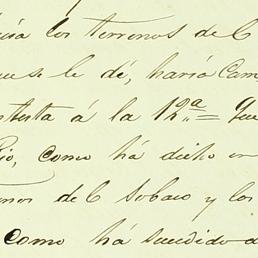 los terrenos de C
que se le dé, haria Cam
á la 12ª = Que
como há dicho en
de C Sobaco y los
como há sucedido a